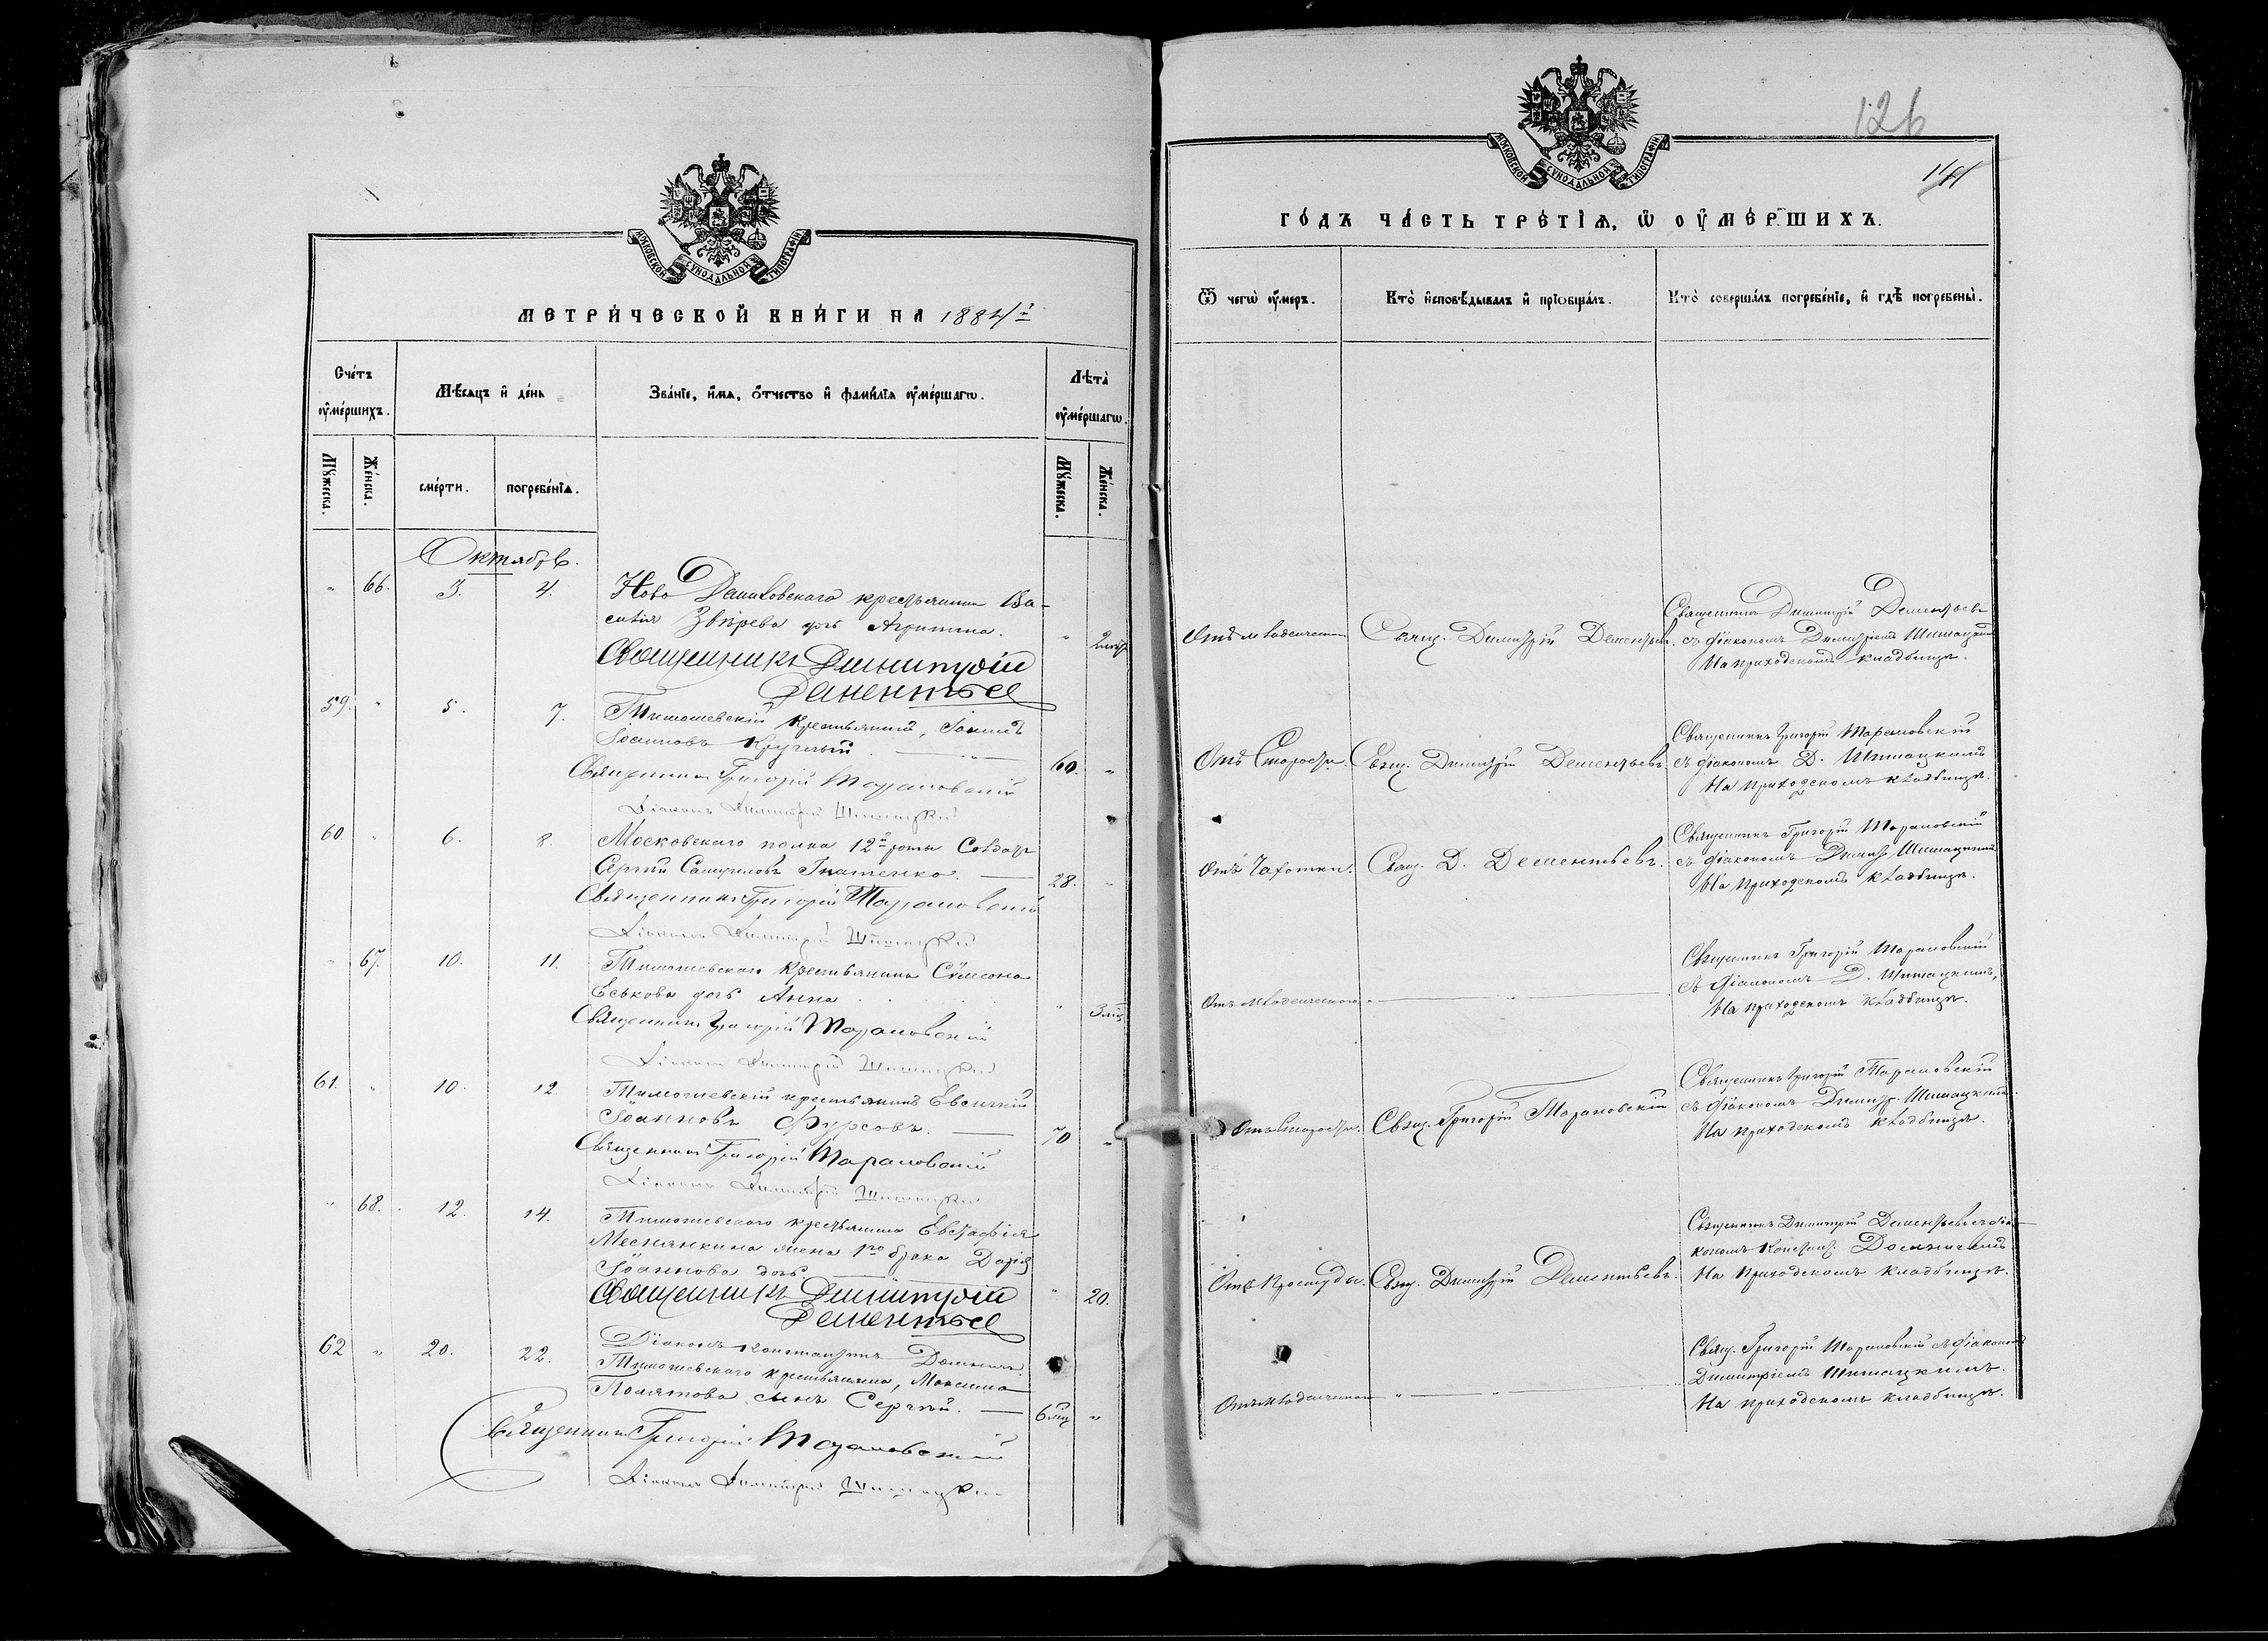 МОСКОВСКОЙ СУНОДАЛЬНОЙ ТИПОГРАФІИ
МЕТРИ́ЧЕСКОЙ КНИ́ГИ НА 1884й
Сче́тъ ᲂу҆ме́ршихъ.
Мѣ́сяцъ и҆ де́нь
Зва́нїе, и҆́мя, ѻ҆́тчество и҆ фами́лїя ᲂу҆ме́ршагѡ.
Лѣта̀ ᲂу҆ме́ршагѡ.
Мꙋ́жеска.
Же́нска.
сме́рти.
погребе́нїѧ.
Мꙋ́жеска.
Же́нска.
Октябрь.
" 66. 3. 4. Ново Даниловскаго крестьянина Ва-
силія Звѣрева дочь
Священникъ Димитрій
Дементьев
59. " 5. 7. Тимошевскій крестьянинъ, Іоаннъ
Іоанновъ Круглый. 60. "
Священникъ Григорій Тарановскій
Діаконъ Димитрій Шишацкій
60. " 6. 8. Московскаго полка 12й роты Солдатъ
Сергѣй Игнатенко 28. "
Священникъ Григорій Тарановскій
Діаконъ Димитрій Шишацкій
" 67. 10. 11. Тимошевскаго крестьянина Сѵмеона
Еськова дочь Анна " 3 мѣс
Священникъ Григорій Тарановскій
Діаконъ Димитрій Шишацкій
61. " 10. 12. Тимошевскій крестьянинъ Евсигній
Іоанновъ Фурсовъ. 70 "
Священникъ Григорій Тарановскій
Діаконъ Димитрій Шишацкій
" 68. 12. 14. Тимошевскаго крестьянина Евстафія
жена 1го брака Дарія
Іоаннова дочь
Священникъ Димитрій " 20.
Дементьев
Діаконъ Константинъ
62 " 20. 22. Тимошевскаго крестьянина, Максима
сынъ Сергѣй. 6 мѣс "
Священникъ Григорій Тарановскій
Діаконъ Димитрій Шишацкій
126
МОСКОВСКОЙ СУНОДАЛЬНОЙ ТИПОГРАФІИ
ГО́ДЪ ЧА́СТЬ ТРЕ́ТЇѦ, Ѡ҆ ОУ҆МЕ́РШИХЪ.
Ѿ чегѡ̀ ᲂу҆́меръ.
Кто̀ и҆сповѣ́дывалъ и҆ прїѡбща́лъ.
Кто̀ соверша́лъ погребе́нїе, и҆ гдѣ̀ погребены̀.
Отъ младенческой Свящ. Димитрій Дементьевъ. Священникъ Димитрій Дементьевъ
съ діакономъ Димитріемъ Шишацкимъ
На приходскомъ кладбищѣ.
Отъ Старости. Свящ. Димитрій Дементьевъ Священникъ Григорій Тарановскій
съ діакономъ Д. Шишацкимъ
На приходскомъ кладбищѣ.
Отъ Чахотки. Свящ. Д. Дементьевъ. Священникъ Григорій Тарановскій
съ діакономъ Димит. Шишацкимъ
На приходскомъ кладбищѣ.
Отъ младенческой Священникъ Григорій Тарановскій
съ діакономъ Д. Шишацкимъ,
На приходскомъ кладбищѣ.
Отъ старости. Свящ. Григорій Тарановскій Священникъ Григорій Тарановскій
съ діакономъ Димитр. Шишацкимъ.
На приходскомъ кладбищѣ.
Отъ Простуды. Свящ. Димитрій Дементьевъ. Священникъ Димитрій Дементьевъ съ діа-
кономъ Констант.
На приходскомъ кладбищѣ.
Отъ младенческой " " Свящ. Григорій Тарановскій съ діакономъ
Димитріемъ Шишацкимъ.
На приходскомъ кладбищѣ.